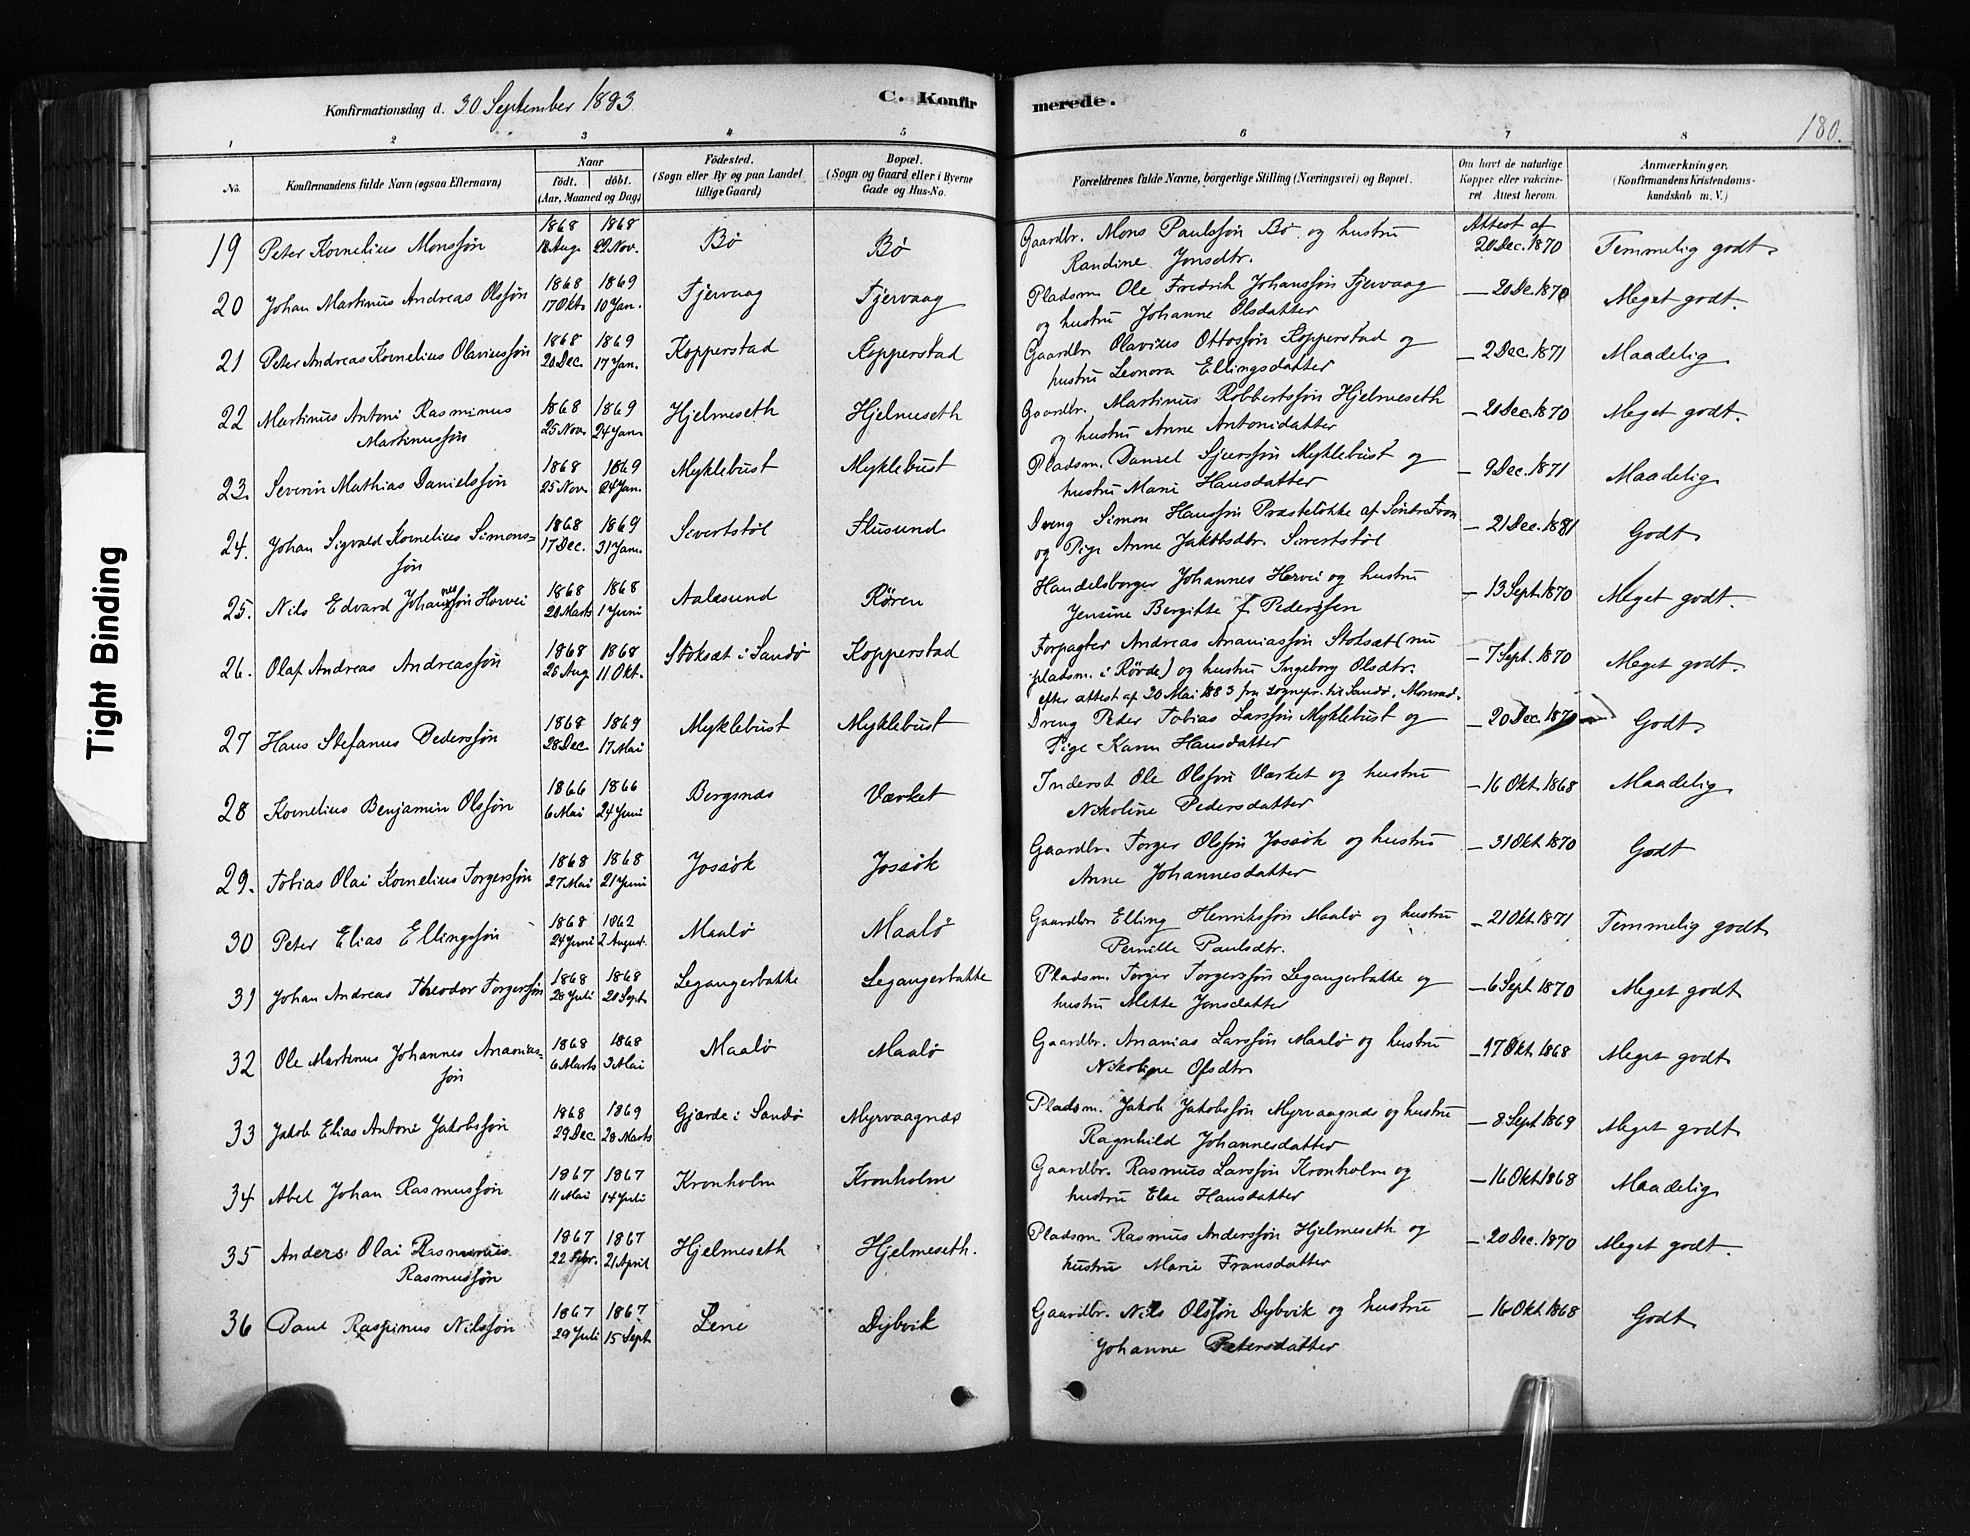 Konfirmationsdag d. 30 September 1883
C. Konfirmerede.
180.
1 2 3 4 5 6 7 8
No.
Konfirmandens fulde Navn (ogsaa Efternavn)
Naar
födt. döbt.
(Aar, Maaned og Dag)
Födested.
(Sogn eller By og paa Landet
tillige Gaard)
Bopæl.
(Sogn og Gaard eller i Byerne
Gade og Hus-No.
Forældrenes fulde Navne, borgerlige Stilling (Næringsvei) og Bopæl.
Om havt de naturlige
Kopper eller vakcine-
ret Attest herom.
Anmærkninger.
(Konfirmandens Kristendoms-
kundskab m. V.)
19 Peter Kornelius Monssøn 1868 18 Aug. 1868 29 Nov. Bø Bø Gaardbr. Mons Paulssøn Bø og hustru
Randine Jonsdtr. Attest af 20 Dec. 1870 Temmelig godt
20 Johan Martinus Andreas Olssøn 1868 17 Okt. 1869 10 Jan. Fjervaag Fjervaag Pladsm. Ole Fredrik Johanssøn Fjervaag
og hustru Johanne Olsdatter — 20 De. 1870 Meget godt.
21 Peter Andreas Kornelius Olaviussøn 1868 20 Dec. 1869 17 Jan. Kopperstad Kopperstad Gaardbr. Olavius Ottossøn Kopperstad og
hustru Leonora Ellingsdatter — 2 Dec. 1871 Maadelig
22 Martinus Antoni Rasminus
Martinussøn 1868 25 Nov. 1869 24 Jan. Hjelmeseth Hjelmeseth Gaardbr. Martinus Robbertssøn Hjelmeseth
og hustru Anne Antonidatter — 20 Dec. 1870 Meget godt.
23. Severin Mathias Danielssøn 1868 25 Nov. 1869 24 Jan. Myklebust Myklebust Pladsm. Daniel Sjurssøn Myklebust og
hustru Marie Hansdatter — 9 Dec. 1871 Maadelig
24. Johan Sigvald Kornelius Simons-
søn 1868 17 Dec. 1869 31 Jan. Sivertstøl Flusund Dreng Simon Hanssøn Præsteløkke af Søndre Fron
og Pige Anne Jakobsdtr. Sivertstøl — 21 Dec. 1881 Godt
25. Nils Edvard Johannessøn Horvei 1868 20 Marts 1868 1 Juni Aalesund Røren Handelsborger Johannes Horvei og hustru
Jensine Bergitte f. Pederssen — 13 Sept. 1870 Meget godt.
26. Olaf Andreas Andreassøn 1868 26 Aug 1868 11 Okt. Stoksæt i Sandø Kopperstad Forpagter Andreas Ananiassøn Stoksæt (nu
pladsm. i Røvde) og hustru Ingeborg Olsdtr.
efter attest af 20 Mai 1883 fra sognepr. til Sandø, Monrad. — 7 Sept. 1870 Meget godt.
27 Hans Stefanus Pederssøn 1868 28 Dec. 1869 17 Mai Myklebust Myklebust Dreng Peder Tobias Larssøn Myklebust og
Pige Karen Hansdatter — 20 Dec. 1870 Godt
28 Kornelius Benjamin Olssøn 1866 6 Mai 1866 24 Juni Bergsnæs Værket Inderst Ole Olssøn Værket og hustru
Nikoline Pedersdatter — 16 Okt. 1868 Maadelig
29. Tobias Olai Kornelius Torgerssøn 1868 27 Mai 1868 21 Juni Jossøk Jossøk Gaardbr. Torger Olssøn Jossøk og hustru
Anne Johannesdatter — 31 Okt. 1870 Godt
30 Peter Elias Ellingssøn 1868 24 Juni 1862 2 August. Maalø Maalø Gaardbr. Elling Henrikssøn Maalø og hustru
Pernille Paulsdtr. — 21 Okt. 1871 Temmelig godt
31 Johan Andreas Theodor Torgerssøn 1868 28 Juli 1868 20 Sept. Legangerbakke Legangerbakke Pladsm. Torger Torgerssøn Legangerbakke og
hustru Mette Jonsdatter — 6 Sept. 1870 Meget godt
32 Ole Martinus Johannes Ananias-
søn 1868 6 Marts 1868 3 Mai Maalø Maalø Gaardbr. Ananias Larssøn Maalø og hustru
Nikoline Olsdtr — 17 Okt. 1868 Meget godt
33 Jakob Elias Antoni Jakobssøn 1868 29 Dec 1869 28 Marts Gjærde i Sandø Myrvaagnæs Pladsm. Jakob Jakobssøn Myrvaagnæs og hustru
Ragnhild Johannesdatter — 8 Sept. 1869 Meget godt
34 Abel Johan Rasmussøn 1867 11 Mai 1867 14 Juli Kronholm Kronholm Gaardbr. Rasmus Larssøn Kronholm og
hustru Else Hansdatter — 16 Okt. 1868 Maadelig
35 Anders Olai Rasmus
Rasmussøn 1867 22 Febr. 1867 21 April Hjelmeseth Hjelmeseth. Pladsm. Rasmus Anderssøn Hjelmeseth og
hustru Marie Fransdatter — 20 Dec. 1870 Meget godt.
36 Paul Rasmus Nilssøn 1867 29 Juli 1867 15 Sept. Lene Dybvik Gaardbr. Nils Olssøn Dybvik og hustru
Johanne Petersdatter — 16 Okt. 1868 Godt
Tight Binding